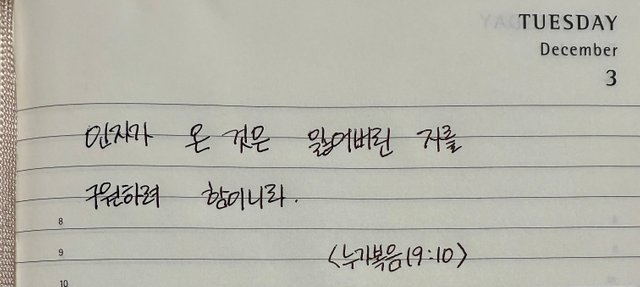 TUESDAY
December
3
인자가 온 것은 잃어버린 자를
구원하려 함이니라.
8
<누가복음 19:10>
9
10